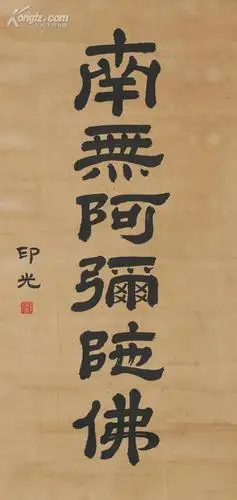 Kongfz.com
南無阿彌陀佛
印光